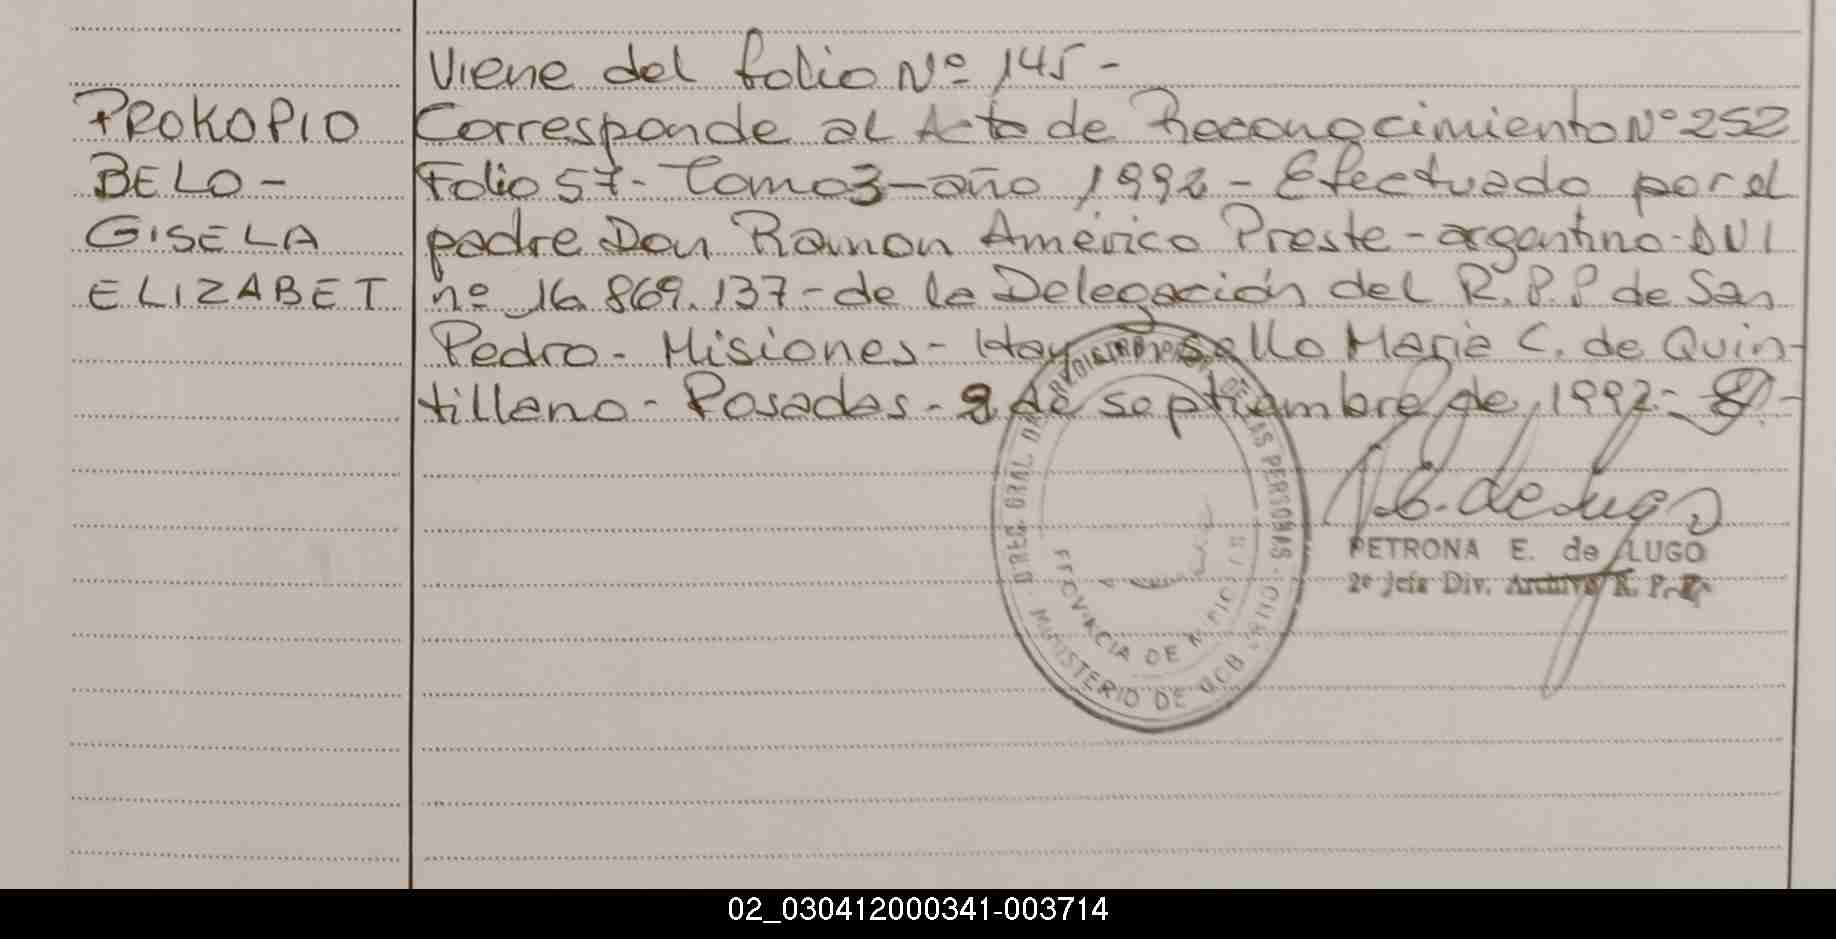 Viene del folio Nº 145-
PROKOPIO
BELO-
GISELA
ELIZABET
Corresponde al Acta de Reconocimiento Nº 252
Folio 57- Tomo 3- año 1992- Efectuado por el
padre Don Ramon Américo Preste- argentino- DNI
nº 16.869.137- de la Delegación del R.P.P de San
Pedro- Misiones- Hay un sello Maria C. de Quin-
tillano- Posadas- 2 de septiembre de 1992-
DREC. GRAL DEL REGISTRO DE LAS PERSONAS
PROVINCIA DE
MINISTERIO DE GOB
P.E. de Lugo
PETRONA E. de LUGO
2º Jefa Div. Archivo R. P. P.
02_030412000341-003714